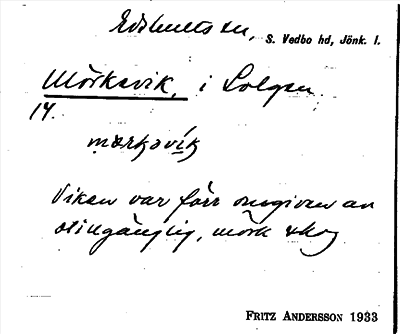 Edshults sn, S. Vedbo hd, Jönk. l.
Mörkavik, i Solgen
14.
mœrkavik
Viken var förr omgiven av
otillgänglig, mörk skog
FRITZ ANDERSSON 1933